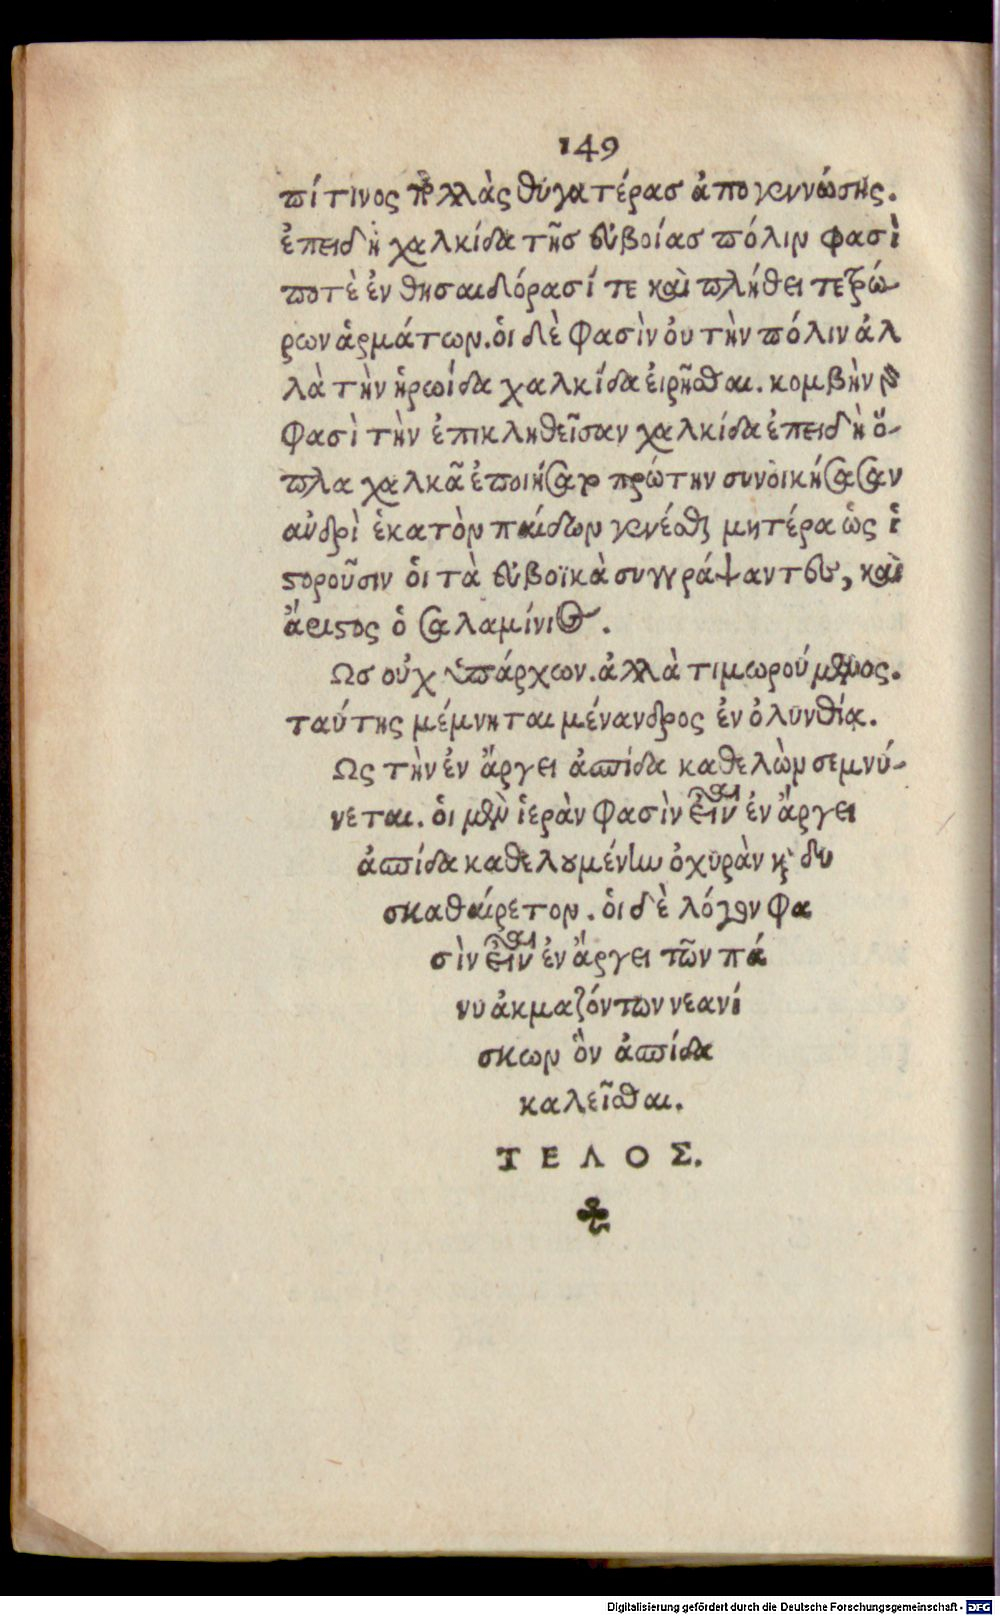 149
πί τινος πολλὰς θυγατέρασ ἀπογεννώσης.
ἐπειδὴ χαλκίδα τῆσ εὐβοίασ πόλιν φασὶ
ποτὲ ἐν θησαιδόρασί τε καὶ πλήθει τετρώ-
ρων ἁρμάτων. ὁι δὲ φασὶν ὀυ τὴν πόλιν ἀλ
λὰ τὴν ἡρωίδα χαλκίδα ἐιρῆσθαι. κομβὴν
φασὶ τὴν ἐπικληθεῖσαν χαλκίδα ἐπειδὴ ὅ-
πλα χαλκᾶ ἐποιήσαν πρώτην συνοικήσασαν
ανδρὶ ἑκατὸν παίδων γενέσθαι μητέρα ὡς ἱ
στοροῦσιν ὁι τὰ εὐβοϊκὰ συγγράψαντες, καὶ
ἄριστος ὁ σαλαμίνιος.
Ωσ οὐχ ὑπάρχων. ἀλλὰ τιμωρούμενος.
ταύτης μέμνηται μένανδρος ἐν ὀλυνθίᾳ.
Ως τὴν ἐν ἄργει ἀσπίδα καθελὼν σεμνύ-
νεται. ὁι μὲν ἱερὰν φασὶν εἶναι ἐν ἄργει
ἀσπίδα καθελουμένην ὀχυρὰν καὶ δυ
σκαθαίρετον. ὁι δὲ λόγον φα
σὶν εἶναι ἐν ἄργει τῶν πά
νυ ἀκμαζόντων νεανί
σκων ὃν ἀσπίδα
καλεῖσθαι.
ΤΕΛΟΣ.
Digitalisierung gefördert durch die Deutsche Forschungsgemeinschaft - DFG